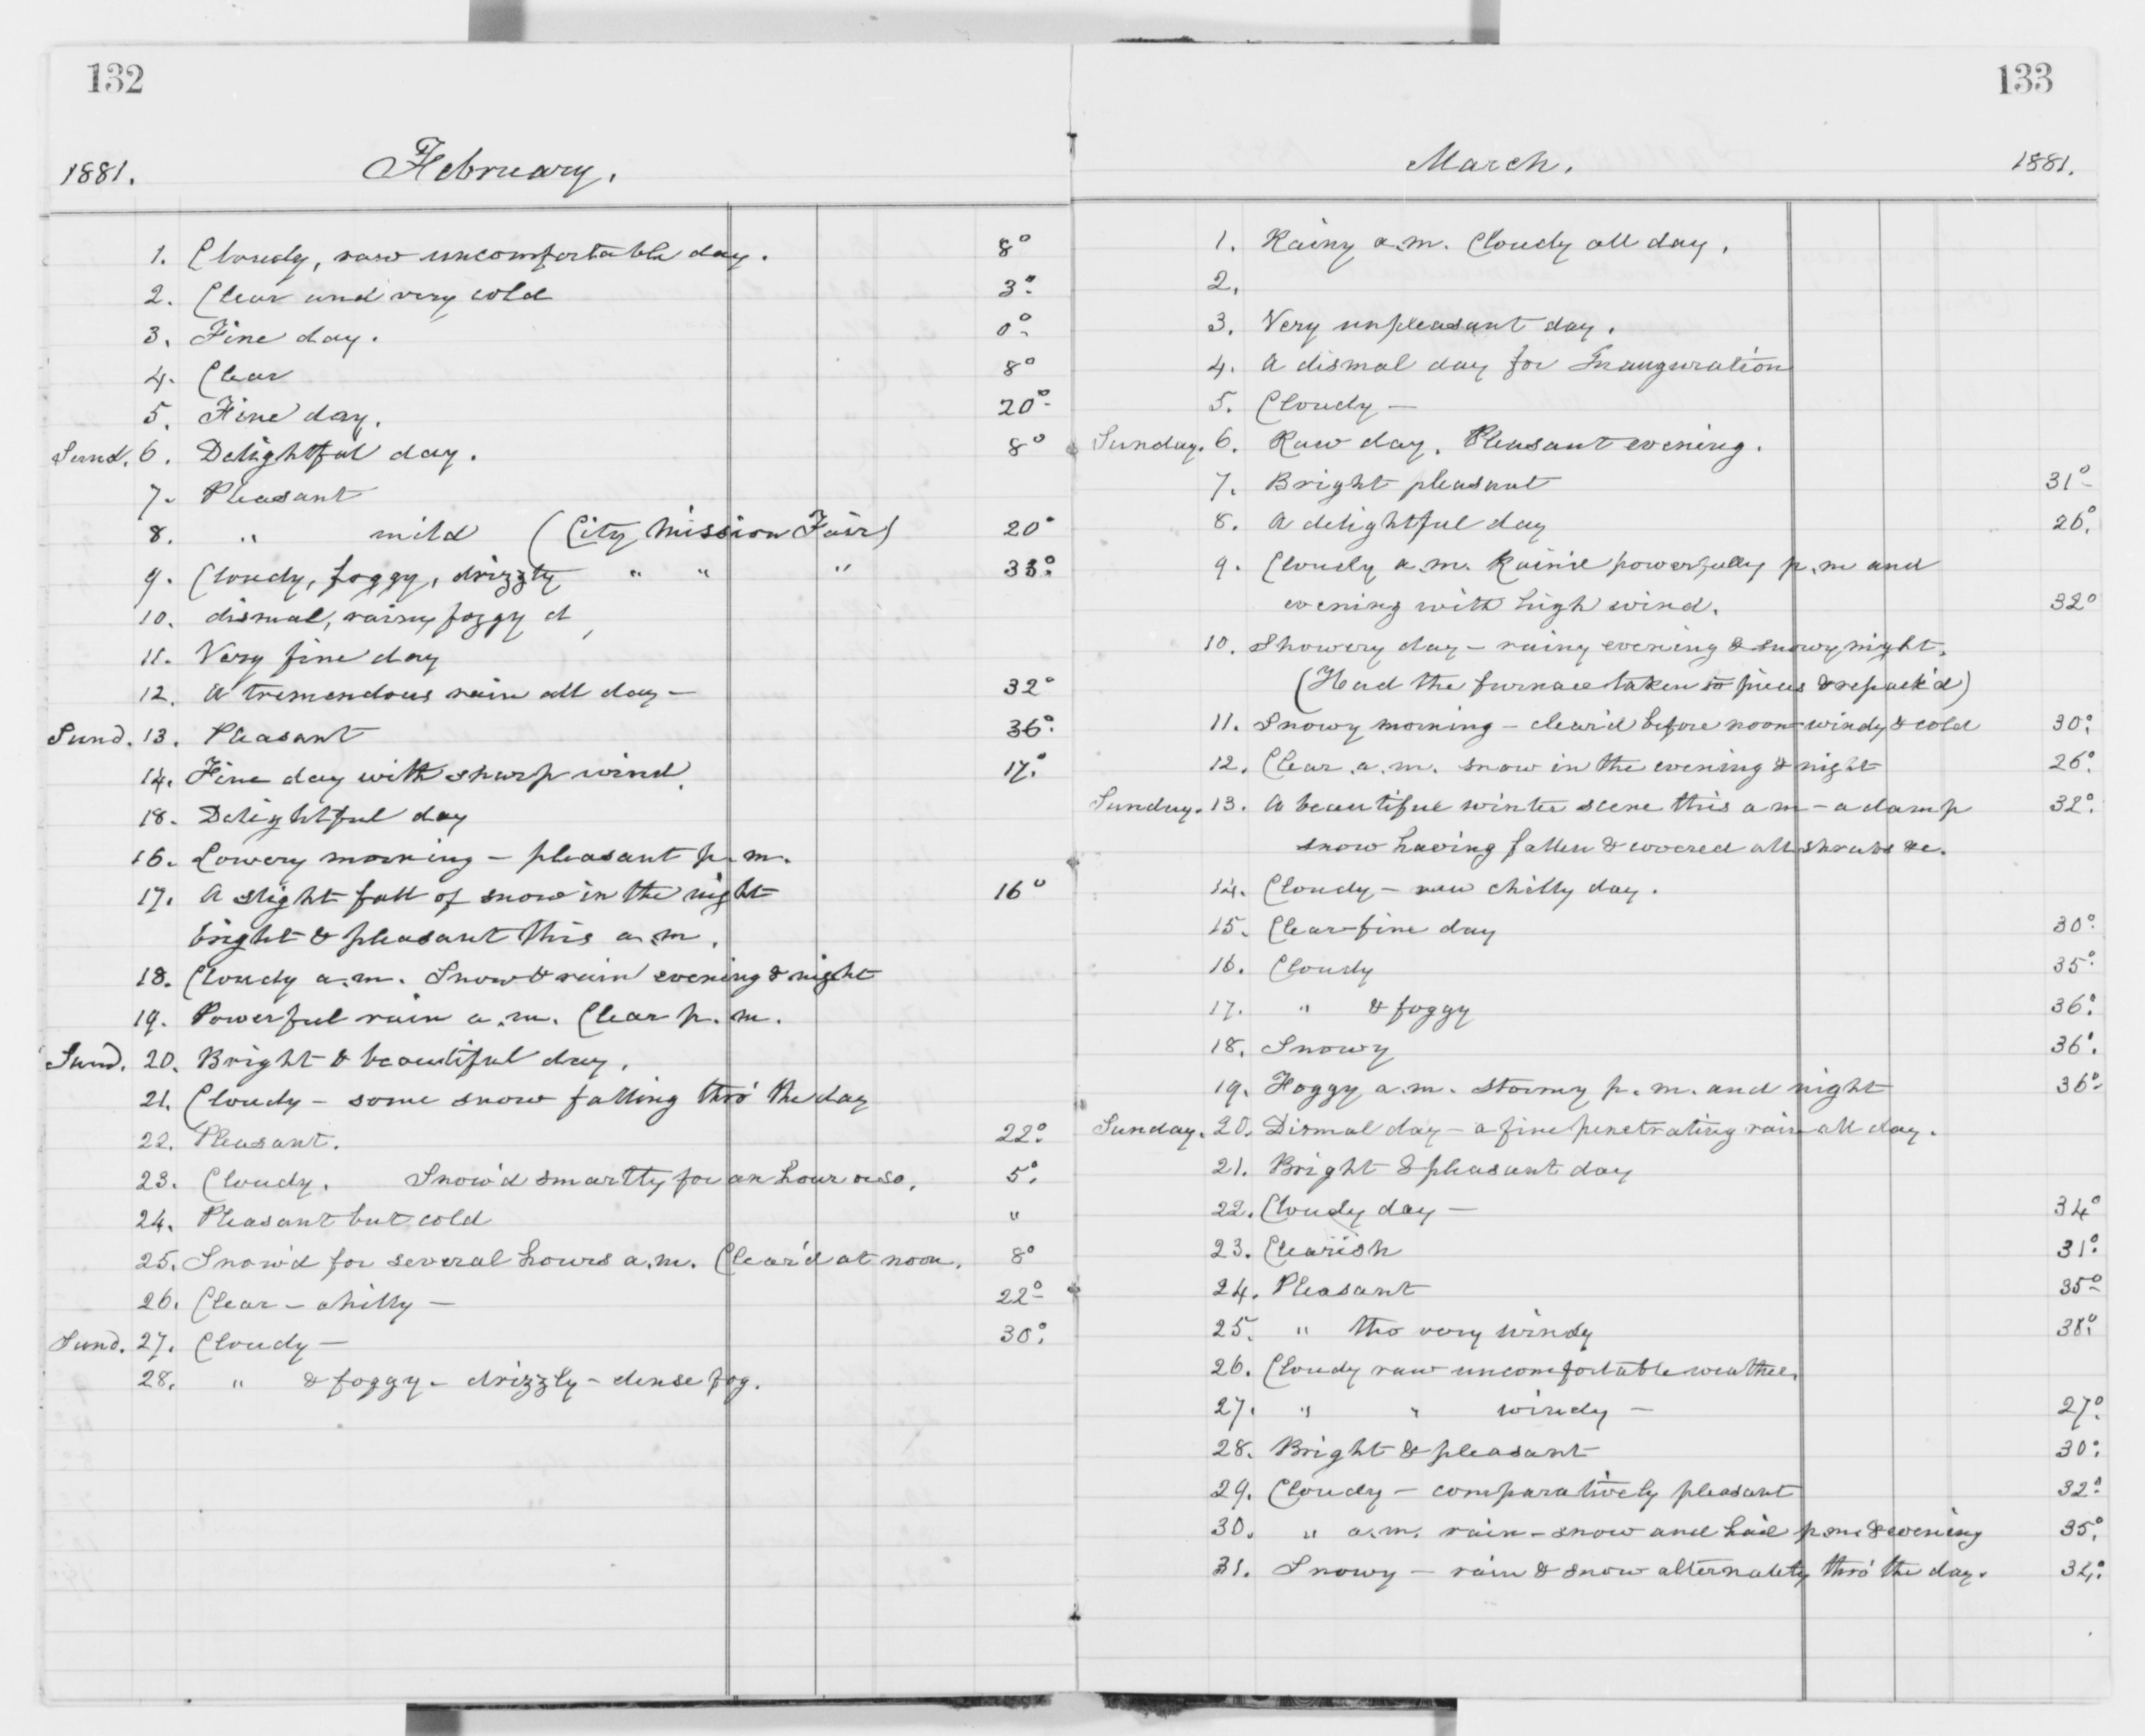 132
1881. February.
1. Cloudy, raw uncomfortable day. 8°
2. Clear and very cold 3°
3. Fine day. 0°
4. Clear 8°
5. Fine day. 20°
Sund. 6. Delightful day. 8°
7. Pleasant
8. " mild (City Mission Fair) 20°
9. Cloudy, foggy, drizzly " " " 33°
10. dismal, rainy foggy d
11. Very fine day
12. A tremendous rain all day – 32°
Sund. 13. Pleasant 36°
14. Fine day with sharp wind. 17°
18. Delightful day
16. Lowery morning – pleasant p.m.
17. A slight fall of snow in the night 16°
bright & pleasant this a.m.
18. Cloudy a.m. Snow & rain evening & night
19. Powerful rain a.m. Clear p.m.
Sund. 20. Bright & beautiful day.
21. Cloudy – some snow falling thro' the day
22. Pleasant. 22°
23. Cloudy. Snow'd smartly for an hour or so. 5°
24. Pleasant but cold "
25. Snow'd for several hours a.m. Clear'd at noon. 8°
26. Clear – chilly – 22°
Sund. 27. Cloudy – 30°
28. " & foggy – drizzly – dense fog.
133
March. 1881.
1. Rainy a.m. Cloudy all day.
2.
3. Very unpleasant day.
4. A dismal day for Inauguration
5. Cloudy –
Sunday. 6. Raw day. Pleasant evening.
7. Bright pleasant 31°
8. A delightful day 26°
9. Cloudy a.m. Rain'd powerfully p.m and
evening with high wind. 32°
10. Showery day – rainy evening & snowy night.
(Had the furnace taken to pieces & repack'd)
11. Snowy morning – clear'd before noon – windy & cold 30°
12. Clear a.m. snow in the evening & night 26°
Sunday. 13. A beautiful winter scene this a m – a damp 32°
snow having fallen & covered all shrubs &c.
14. Cloudy – raw chilly day.
15. Clear fine day 30°
16. Cloudy 35°
17. " & foggy 36°
18. Snowy 36°
19. Foggy a.m. stormy p.m. and night 36°
Sunday. 20. Dismal day – a fine penetrating rain all day.
21. Bright & pleasant day
22. Cloudy day – 34°
23. Clearish 31°
24. Pleasant 35°
25. " tho very windy 38°
26. Cloudy raw uncomfortable weather.
27. " " windy – 27°
28. Bright & pleasant 30°
29. Cloudy – comparatively pleasant 32°
30. " a.m. rain – snow and hail p.m. & evening 35°
31. Snowy – rain & snow alternately thro' the day. 34°